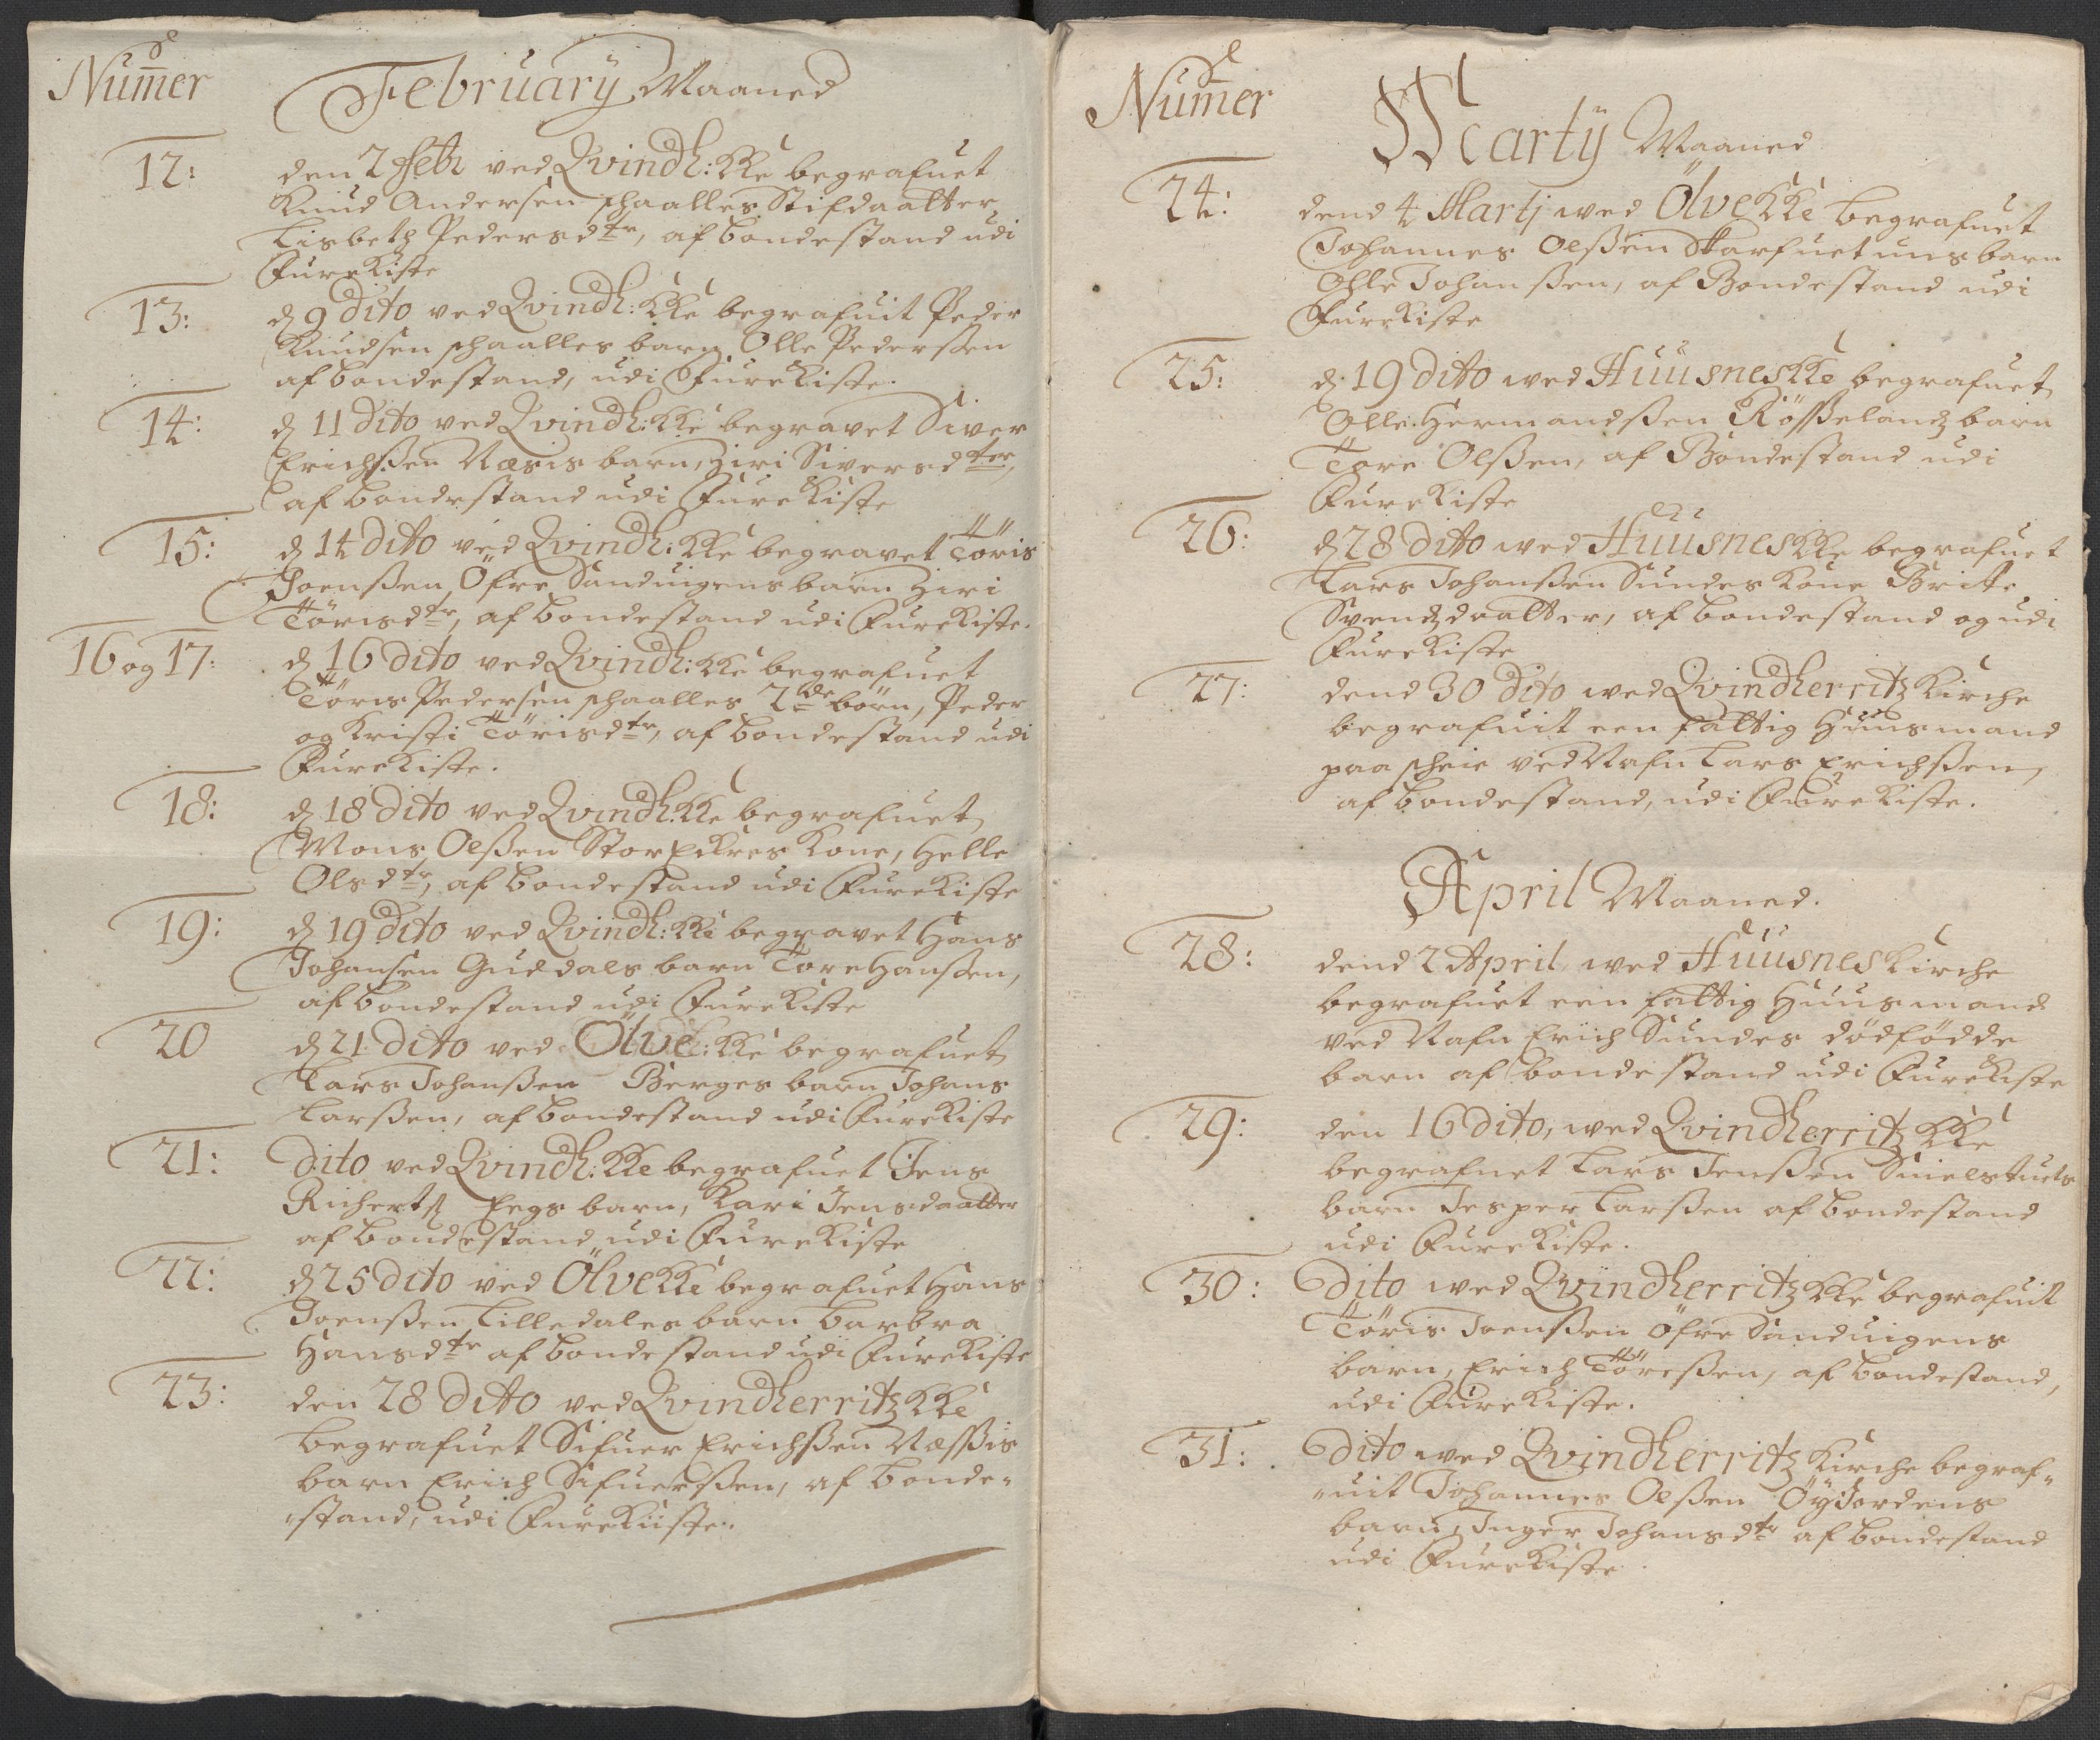 Numer
February Maaned
12: den 2 Febr ved Qvindh: KKe begrafuet
Knud Andersen schaalles Stifdaatter
Lisbeth Pedersdtr, af bondestand udi
FureKiste
13: d 9 dito ved Qvindh: KKe begrafuit Peder
Knudsen schaalles barn Olle Pederssen
af bondestand, udi FureKiste.
14: d 11 dito ved Qvindh: KKe begravet Siver
Erichssen Næsis barn, Ziri Siversdter,
af bondestand udi FureKiste
15: d 14 dito ved Qvindh: KKe begravet Töris
Joenssen Öfre Sanduigens barn Ziri
Törisdtr, af bondestand udi FureKiste.
16 og 17: d 16 dito ved Qvindh: KKe begrafuet
Töris Pedersen schaalles 2de börn, Peder
og Kristi Törisdtr, af bondestand udi
FureKiste.
18: d 18 dito ved Qvindh: KKe begrafuet
Mons Olssen StorEkres Kone, Helle
Olsdtr, af bondestand udi FureKiste
19: d 19 dito ved Qvindh: KKe begravet Hans
Johansen Guddals barn Tore Hanssen,
af bondestand udi FureKiste
20 d 21 dito ved Ölve: KKe begrafuet
Lars Johanssen Berges barn Johans
Larssen, af bondestand udi FureKiste
21: dito ved Qvindh: KKe begrafuet Jens
Richerts Eegs barn, Kari Jensdaatter
af bondestand udi FureKiste
22: d 25 dito ved Ölve KKe begrafuet Hans
Joenssen Lilledales barn Barbra
Hansdtr af bondestand udi FureKiste
23: den 28 dito ved Qvindherritz KKe
begrafuet Sifuer Erichssen Næssis
barn Erich Sifuerssen, af bonde-
-stand, udi FureKiiste.
Numer
Martij Maaned
24: dend 4 Martj wed Ölve KKe begrafuet
Johannes Olssen Skarfuetuns barn
Ohle Johanssen, af Bondestand udi
FureKiste
25: d. 19 dito wed Huusnes KKe begrafuet
Olle Hermandssen Rösselandz barn
Tore Olssen, af Bondestand udi
FureKiste
26: d 28 dito wed Huusnes KKe begrafuet
Lars Johanssen Sundes Kone Britte
Svendzdaatter, af bondestand og udi
FureKiste
27: dend 30 dito wed Qvindherritz Kirche
begrafuit een fattig Huusmand
paa scheie ved Nafn Lars Erichssen,
af bondestand, udi FureKiste.
April Maaned.
28: dend 2 April wed Huusnes Kirche
begrafuet een fattig Huusmand
ved Nafn Erich Sundes dödfödde
barn af bondestand udi FureKiste
29: den 16 dito, wed Qvindherritz KKe
begrafuet Lars Jenssen Snielstuets
barn Jesper Larssen af bondestand
udi FureKiste.
30: Dito wed Qvindherritz KKe begrafuit
Töris Joenssen Öfre Sanduigens
barn, Erich Törissen, af bondestand,
udi FureKiste.
31: Dito wed Qvindherritz Kirche begraf-
-uit Johannes Olssen ÖyJordens
barn, Inger Johansdtr af bondestand
udi FureKiste